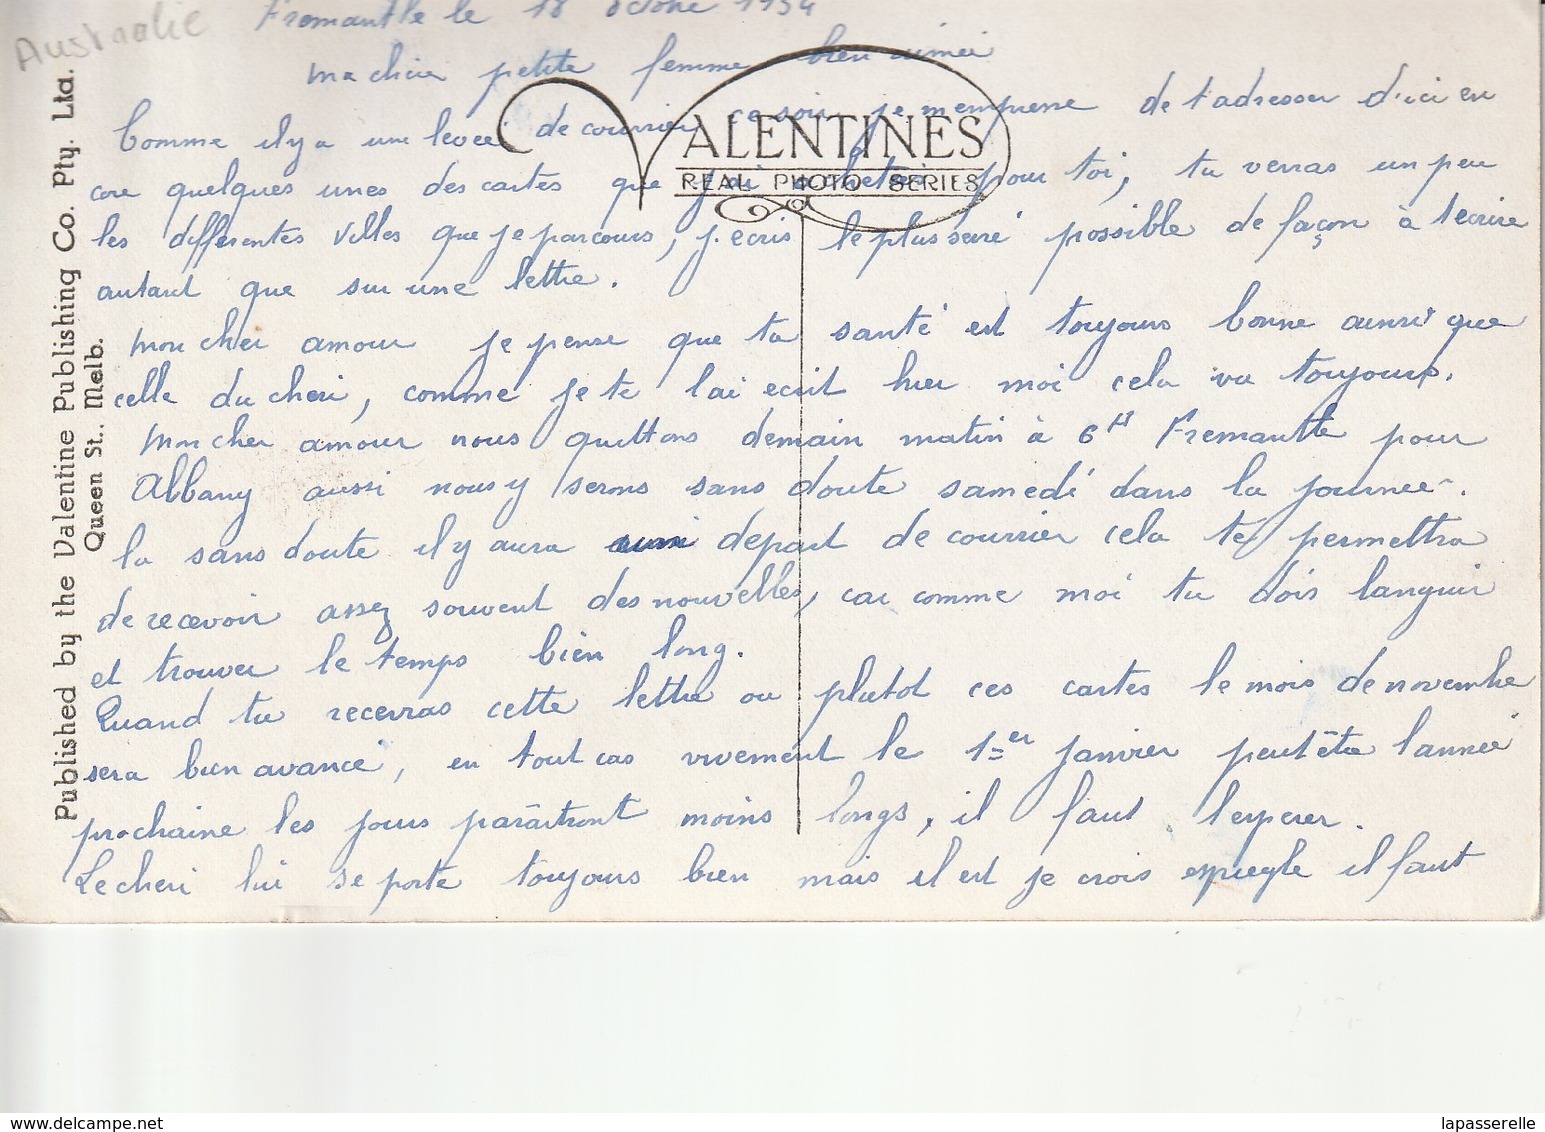 Australie
Fremantle le 18 octobre 1934
ma chère petite femme bien aimée
Comme il y a une levée de courrier ce soir je m'empresse de t'adresser d'ici en
core quelques unes des cartes que j'ai achetées pour toi, tu verras un peu
les differentes villes que je parcours, j'ecris le plus serré possible de façon à t'ecrire
autant que sur une lettre.
Mon cher amour je pense que ta santé est toujours bonne ainsi que
celle du cheri, comme je te l'ai ecrit hier moi cela va toujours.
Mon cher amour nous quittons demain matin à 6H Fremantle pour
Albany aussi nous y serons sans doute samedi dans la journée.
la sans doute il y aura aussi depart de courrier cela te permettra
de recevoir assez souvent des nouvelles, car comme moi tu dois languir
et trouver le temps bien long.
Quand tu recevras cette lettre ou plutot ces cartes le mois de novembre
sera bien avancé, en tout cas vivement le 1er janvier peut être l'année
prochaine les jours paraitront moins longs, il faut l'esperer.
Le cheri lui se porte toujours bien mais il est je crois espiegle il faut
VALENTINES
REAL PHOTO SERIES
Published by the Valentine Publishing Co. Pty. Ltd.
Queen St., Melb.
lapasserelle
www.delcampe.net